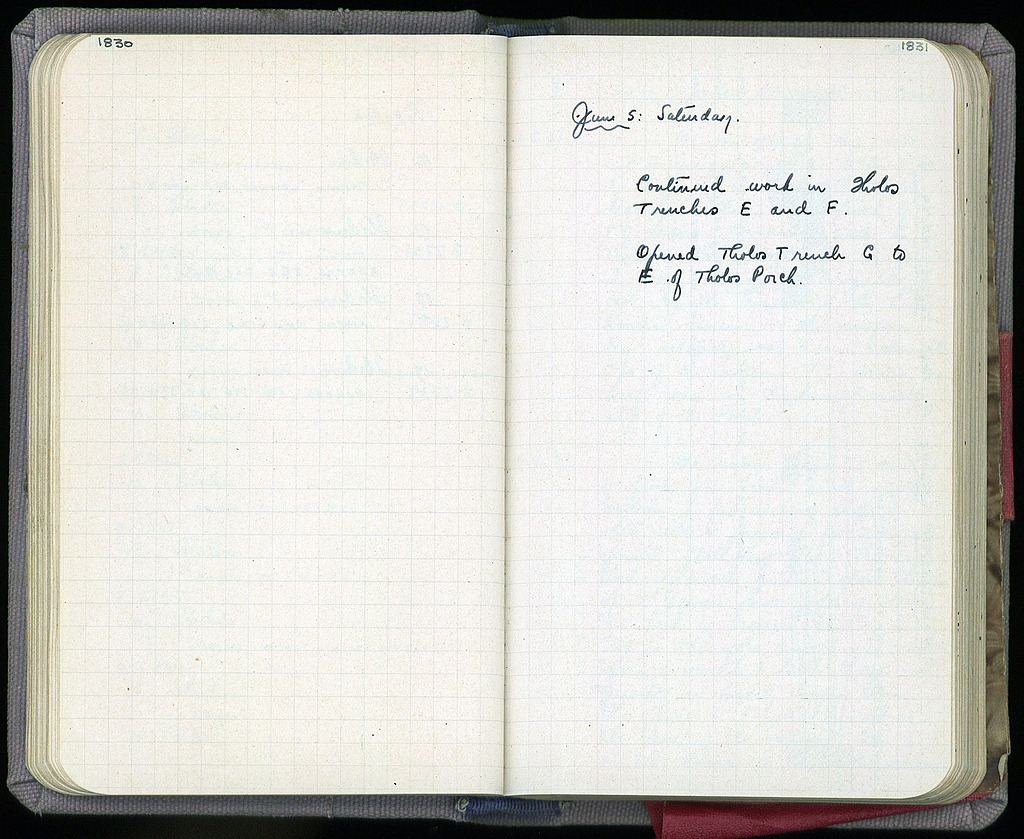 1830
1831
June 5: Saturday.
Continued work in Tholos
Trenches E and F.
Opened Tholos Trench G to
E of Tholos Porch.